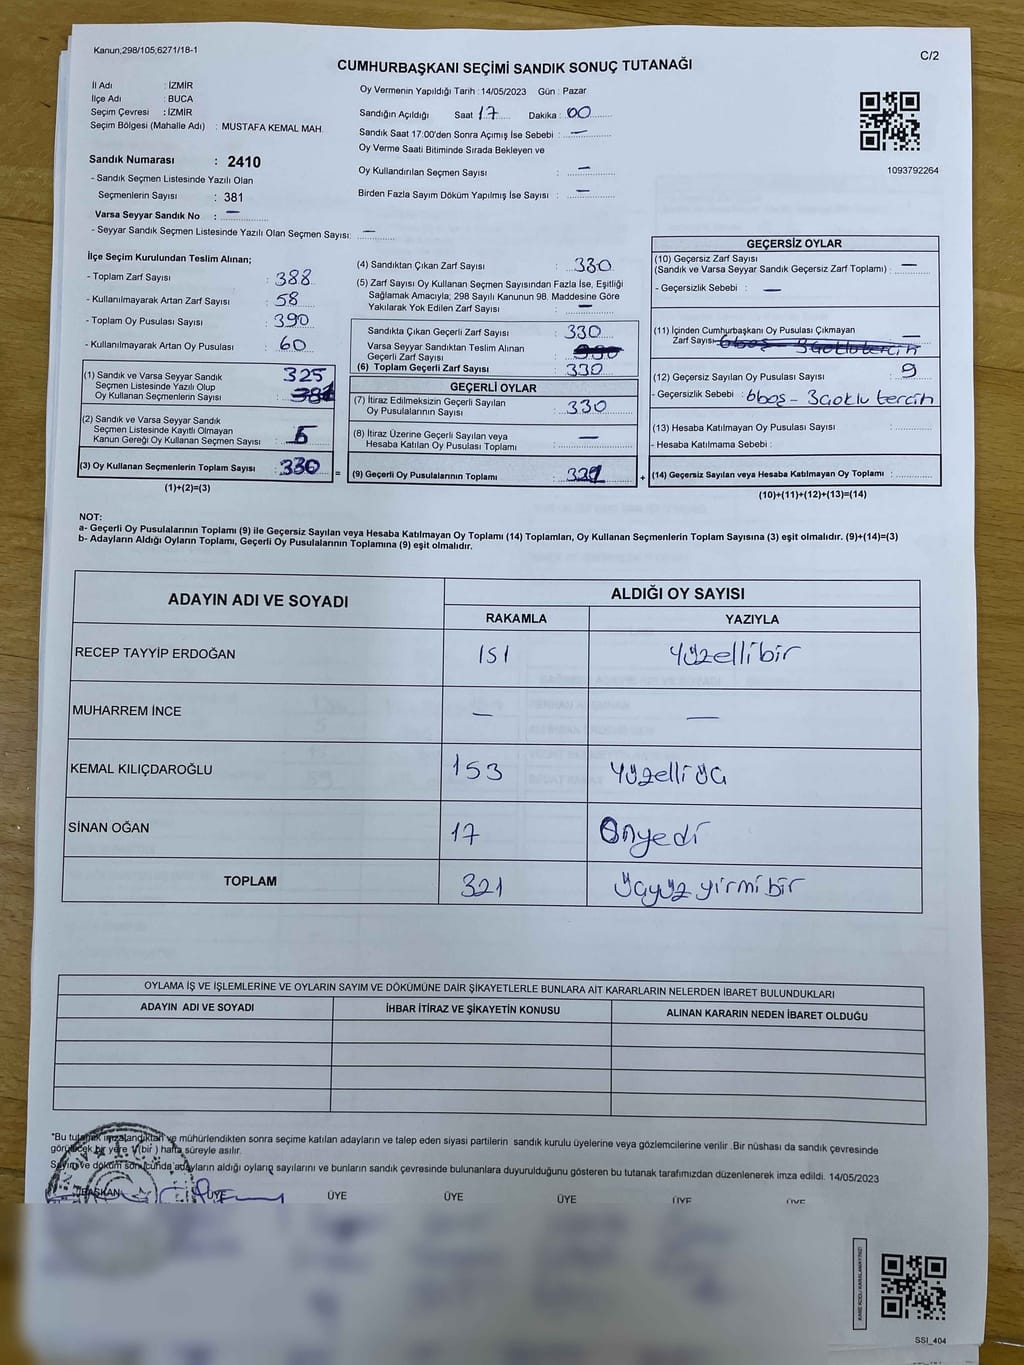 Kanun;298/105;6271/18-1
C/2
CUMHURBAŞKANI SEÇİMİ SANDIK SONUÇ TUTANAĞI
İl Adı : İZMİR
İlçe Adı : BUCA
Seçim Çevresi : İZMİR
Seçim Bölgesi (Mahalle Adı) : MUSTAFA KEMAL MAH.
Sandık Numarası : 2410
- Sandık Seçmen Listesinde Yazılı Olan
Seçmenlerin Sayısı : 381
Varsa Seyyar Sandık No : —
- Seyyar Sandık Seçmen Listesinde Yazılı Olan Seçmen Sayısı: —
Oy Vermenin Yapıldığı Tarih : 14/05/2023 Gün : Pazar
Sandığın Açıldığı Saat 17 Dakika : 00
Sandık Saat 17:00'den Sonra Açımış İse Sebebi : —
Oy Verme Saati Bitiminde Sırada Bekleyen ve
Oy Kullandırılan Seçmen Sayısı : —
Birden Fazla Sayım Döküm Yapılmış İse Sayısı : —
1093792264
İlçe Seçim Kurulundan Teslim Alınan;
- Toplam Zarf Sayısı : 388
- Kullanılmayarak Artan Zarf Sayısı : 58
- Toplam Oy Pusulası Sayısı : 390
- Kullanılmayarak Artan Oy Pusulası : 60
(1) Sandık ve Varsa Seyyar Sandık
Seçmen Listesinde Yazılı Olup
Oy Kullanan Seçmenlerin Sayısı : 325
(2) Sandık ve Varsa Seyyar Sandık
Seçmen Listesinde Kayıtlı Olmayan
Kanun Gereği Oy Kullanan Seçmen Sayısı : 5
(3) Oy Kullanan Seçmenlerin Toplam Sayısı : 330
(1)+(2)=(3)
=
(4) Sandıktan Çıkan Zarf Sayısı : 330
(5) Zarf Sayısı Oy Kullanan Seçmen Sayısından Fazla İse, Eşitliği
Sağlamak Amacıyla; 298 Sayılı Kanunun 98. Maddesine Göre
Yakılarak Yok Edilen Zarf Sayısı : —
Sandıkta Çıkan Geçerli Zarf Sayısı : 330
Varsa Seyyar Sandıktan Teslim Alınan
Geçerli Zarf Sayısı :
(6) Toplam Geçerli Zarf Sayısı : 330
GEÇERLİ OYLAR
(7) İtiraz Edilmeksizin Geçerli Sayılan
Oy Pusulalarının Sayısı : 330
(8) İtiraz Üzerine Geçerli Sayılan veya
Hesaba Katılan Oy Pusulası Toplamı : —
(9) Geçerli Oy Pusulalarının Toplamı : 321
+
GEÇERSİZ OYLAR
(10) Geçersiz Zarf Sayısı
(Sandık ve Varsa Seyyar Sandık Geçersiz Zarf Toplamı) : —
- Geçersizlik Sebebi : —
(11) İçinden Cumhurbaşkanı Oy Pusulası Çıkmayan
Zarf Sayısı : 6 boş - 3 Çoklu tercih
(12) Geçersiz Sayılan Oy Pusulası Sayısı : 9
- Geçersizlik Sebebi : 6 boş - 3 çoklu tercih
(13) Hesaba Katılmayan Oy Pusulası Sayısı :
- Hesaba Katılmama Sebebi :
(14) Geçersiz Sayılan veya Hesaba Katılmayan Oy Toplamı :
(10)+(11)+(12)+(13)=(14)
NOT:
a- Geçerli Oy Pusulalarının Toplamı (9) ile Geçersiz Sayılan veya Hesaba Katılmayan Oy Toplamı (14) Toplamları, Oy Kullanan Seçmenlerin Toplam Sayısına (3) eşit olmalıdır. (9)+(14)=(3)
b- Adayların Aldığı Oyların Toplamı, Geçerli Oy Pusulalarının Toplamına (9) eşit olmalıdır.
ADAYIN ADI VE SOYADI ALDIĞI OY SAYISI
RAKAMLA YAZIYLA
RECEP TAYYİP ERDOĞAN 151 Yüzellibir
MUHARREM İNCE — —
KEMAL KILIÇDAROĞLU 153 Yüzelliüç
SİNAN OĞAN 17 Onyedi
TOPLAM 321 Üçyüz yirmi bir
OYLAMA İŞ VE İŞLEMLERİNE VE OYLARIN SAYIM VE DÖKÜMÜNE DAİR ŞİKAYETLERLE BUNLARA AİT KARARLARIN NELERDEN İBARET BULUNDUKLARI
ADAYIN ADI VE SOYADI İHBAR İTİRAZ VE ŞİKAYETİN KONUSU ALINAN KARARIN NEDEN İBARET OLDUĞU
*Bu tutanak imzalandıktan ve mühürlendikten sonra seçime katılan adayların ve talep eden siyasi partilerin sandık kurulu üyelerine veya gözlemcilerine verilir .Bir nüshası da sandık çevresinde
görülecek bir yere 1(bir) hafta süreyle asılır.
Sayım ve döküm sonucunda adayların aldığı oyların sayılarını ve bunların sandık çevresinde bulunanlara duyurulduğunu gösteren bu tutanak tarafımızdan düzenlenerek imza edildi. 14/05/2023
BAŞKAN ÜYE ÜYE ÜYE ÜYE ÜYE ÜYE
SSI_404